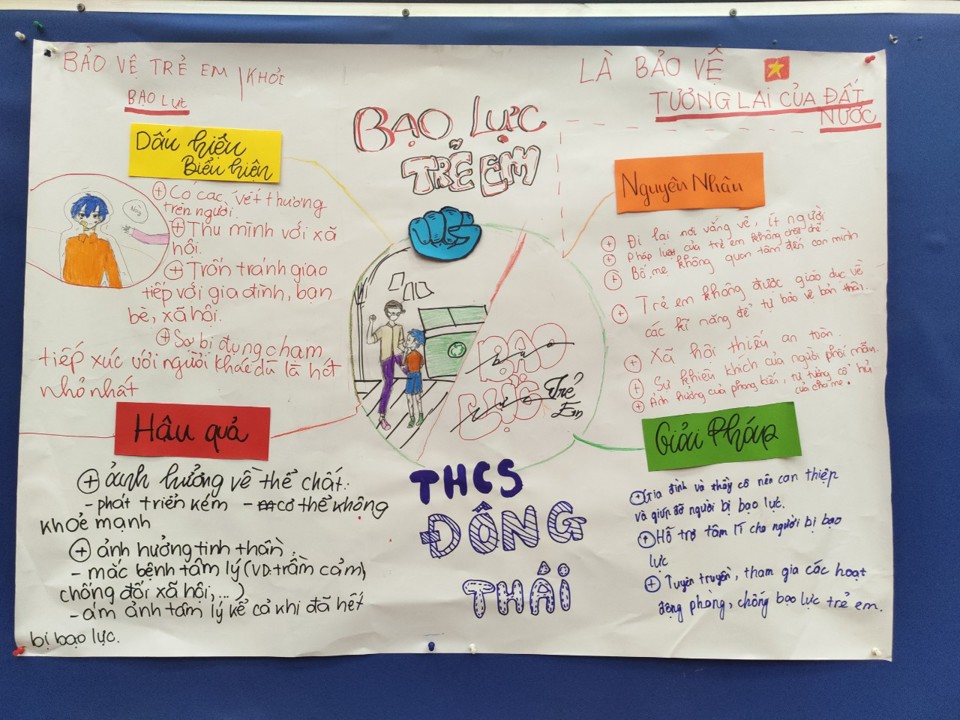 BẢO VỆ TRẺ EM KHỎI
BẠO LỰC
LÀ BẢO VỆ
TƯƠNG LAI CỦA ĐẤT
NƯỚC
BẠO LỰC
TRẺ EM
Dấu hiệu
Biểu hiện
+ Có các vết thương
trên người
+ Thu mình với xã
hội.
+ Trốn tránh giao
tiếp với gia đình, bạn
bè, xã hội.
+ Sợ bị đụng chạm
tiếp xúc với người khác dù là hết
nhỏ nhất
Nguyên Nhân
+ Đi lại nơi vắng vẻ, ít người
+ Pháp luật của trẻ em không chặt chẽ.
+ Bố mẹ không quan tâm đến con mình
+ Trẻ em không được giáo dục về
các kĩ năng để tự bảo vệ bản thân.
+ Xã hội thiếu an toàn.
+ Sự khiêu khích của người phối mẫu.
+ Ảnh hưởng của phong kiến, tư tưởng cổ hủ
của cha mẹ.
BẠO
LỰC
Trẻ
Em
Hậu quả
+ ảnh hưởng về thể chất:
- phát triển kém - cơ thể không
khoẻ mạnh
+ ảnh hưởng tinh thần
- mắc bệnh tâm lý (VD: trầm cảm,
chống đối xã hội,...)
- ám ảnh tâm lý kể cả khi đã hết
bị bạo lực.
THCS
ĐÔNG
THÁI
Giải Pháp
+ Gia đình và thầy cô nên can thiệp
và giúp đỡ người bị bạo lực.
+ Hỗ trợ tâm lí cho người bị bạo
lực
+ Tuyên truyền, tham gia các hoạt
động phòng, chống bạo lực trẻ em.